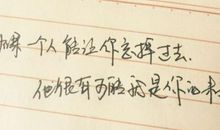 如果一个人能让你忘掉过去.
他很有可能就是你的未来